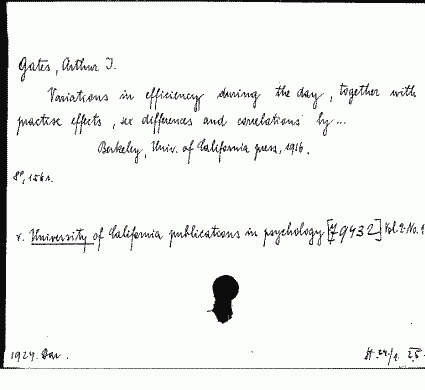 Gates, Arthur I.
Variations in efficiency during the day, together with
practise effects, sex differences and correlations by...
Berkeley, Univ. of California press, 1916.
8°, 156 s.
v. University of California publications in psychology [79432] Vol. 2. No. 1
1924. Dar.